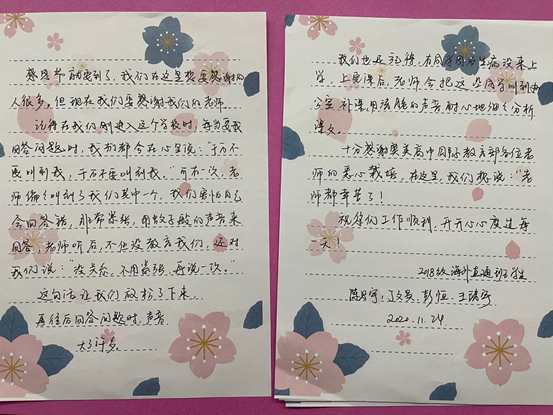 感恩节就要到了，我们在这里想要感谢的
人很多，但现在我们要感谢我们的老师。
记得在我们刚进入这个学校时，每当要我
回答问题时，我们都会在心里说："千万不
要叫到我，千万不要叫到我。"可有一次，老
师偏偏叫到了我们其中一个，我们害怕自己
会回答错，非常紧张，用蚊子般的声音来
回答，老师听后，不但没教育我们，还对
我们说："没关系，不用紧张，再说一次。"
这句话让我们放松了下来。
再往后回答问题时，声音
大了许多。
我们也还记得，有同学因为生病没来上
学，上课后，老师会把这些同学叫到办
公室，补课，用清脆的声音耐心地细细分析
课文。
十分感谢奥美高中国际教育部各位老
师的爱心栽培，在这里，我们想说："老
师都辛苦了！
祝你们工作顺利，开开心心度过每
一天！
2018级海外直通班学生
丁文昊、彭恒、王
2020.11.24